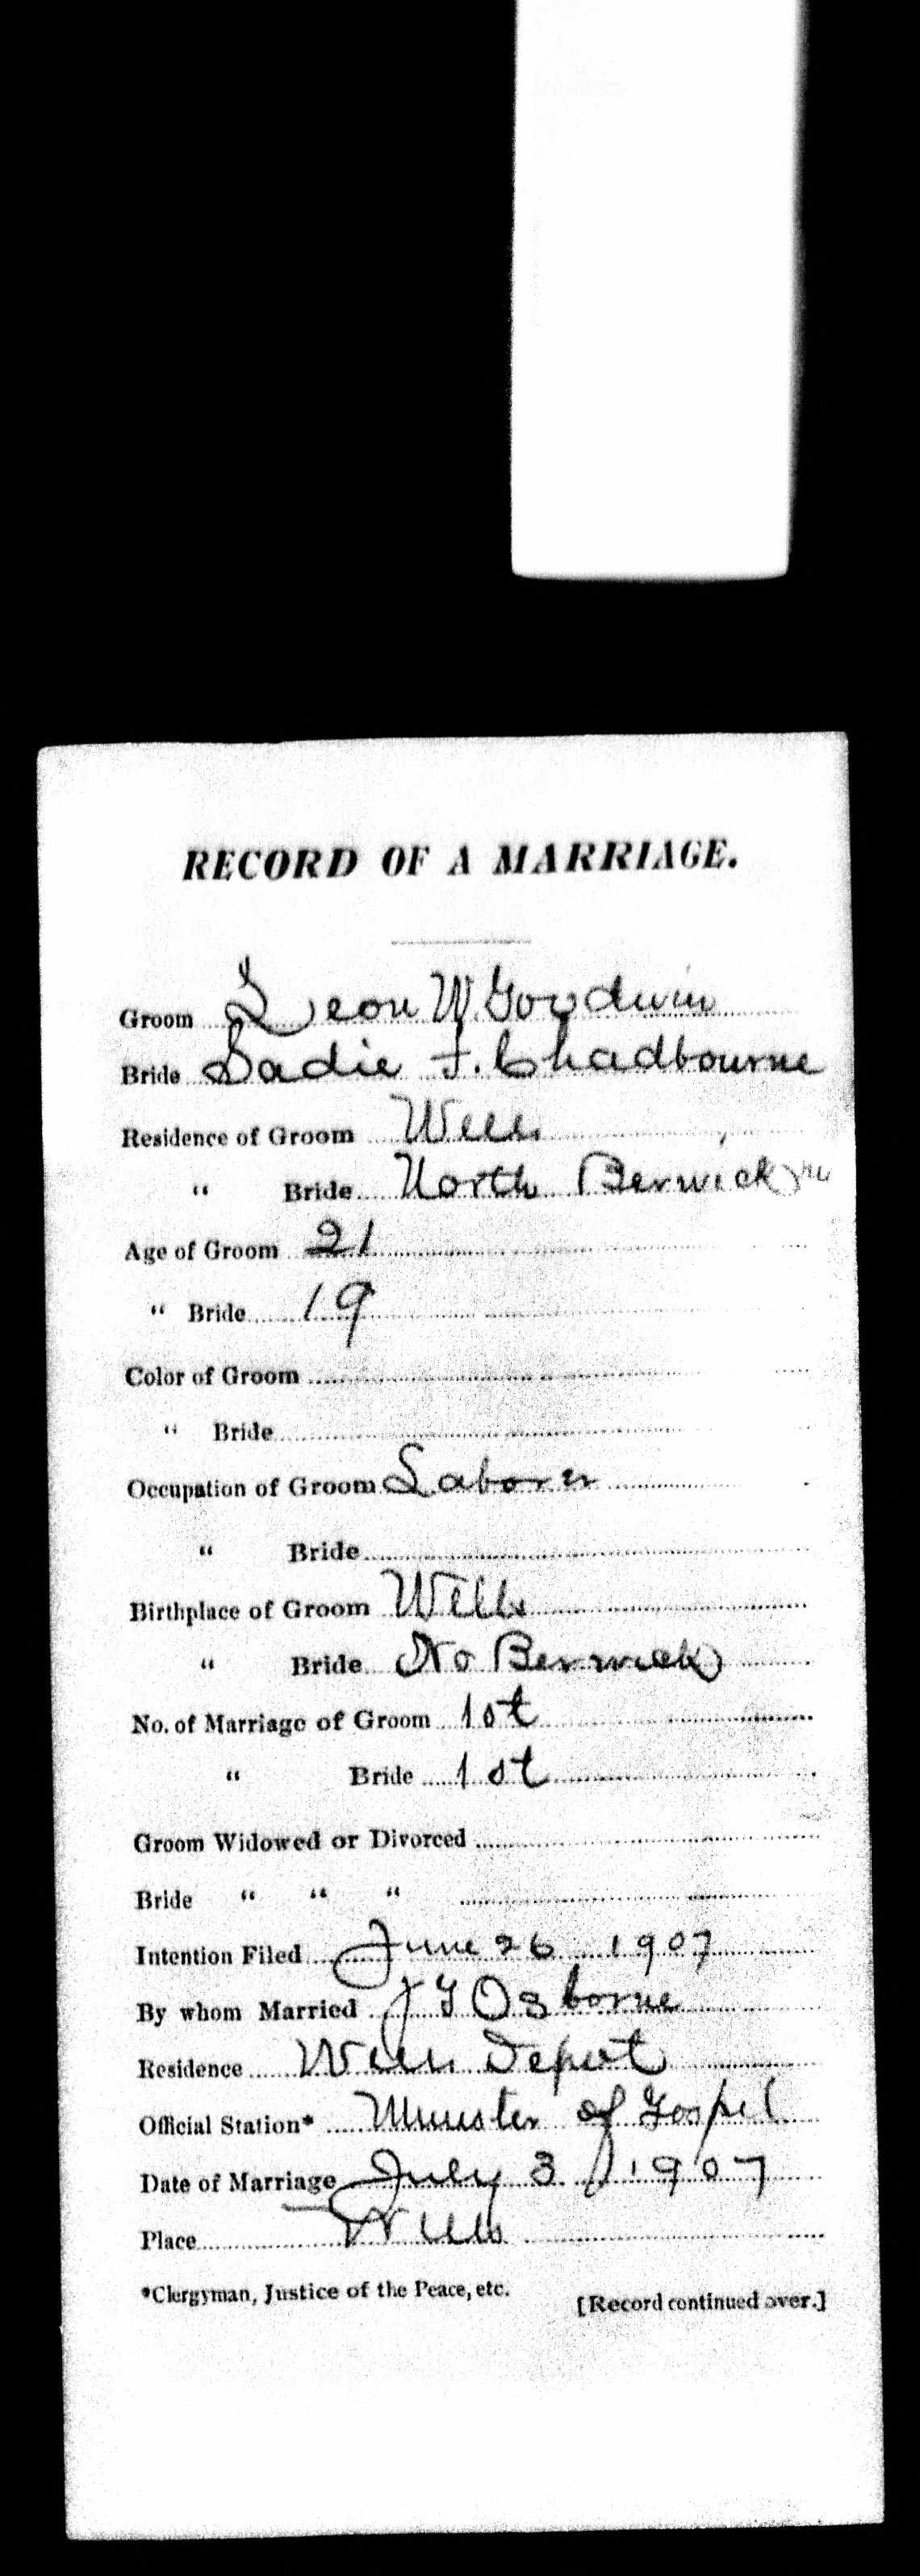 RECORD OF A MARRIAGE.
Groom Leon W Goodwin
Bride Sadie F. Chadbourne
Residence of Groom Wells
" Bride North Berwick
Age of Groom 21
" Bride 19
Color of Groom
" Bride
Occupation of Groom Laborer
" Bride
Birthplace of Groom Wells
" Bride No Berwick
No. of Marriage of Groom 1st
" Bride 1st
Groom Widowed or Divorced
Bride " " "
Intention Filed June 26 1907
By whom Married Osborne
Residence Wells Depot
Official Station* Minister of Gospel
Date of Marriage July 3 1907
Place Wells
*Clergyman, Justice of the Peace, etc.
[Record continued over.]